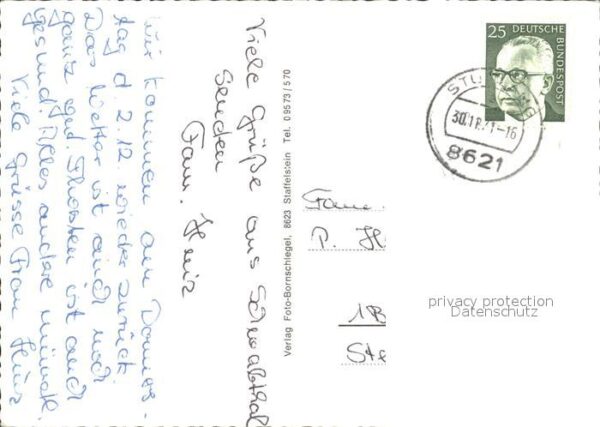 Wir kommen am Donners-
tag d. 2.12. wieder zurück.
Das Wetter ist auch noch
ganz gut. Thorsten ist auch
gesund. Alles andere mündl.
Viele Grüsse Frau
Viele Grüße aus Schwabthal
Senden
Fam.
Verlag Foto-Bornschlegel, 8623 Staffelstein Tel. 09573/570
25
DEUTSCHE
BUNDESPOST
-16
8621
Fam.
P. H
1B
Ste
privacy protection
Datenschutz